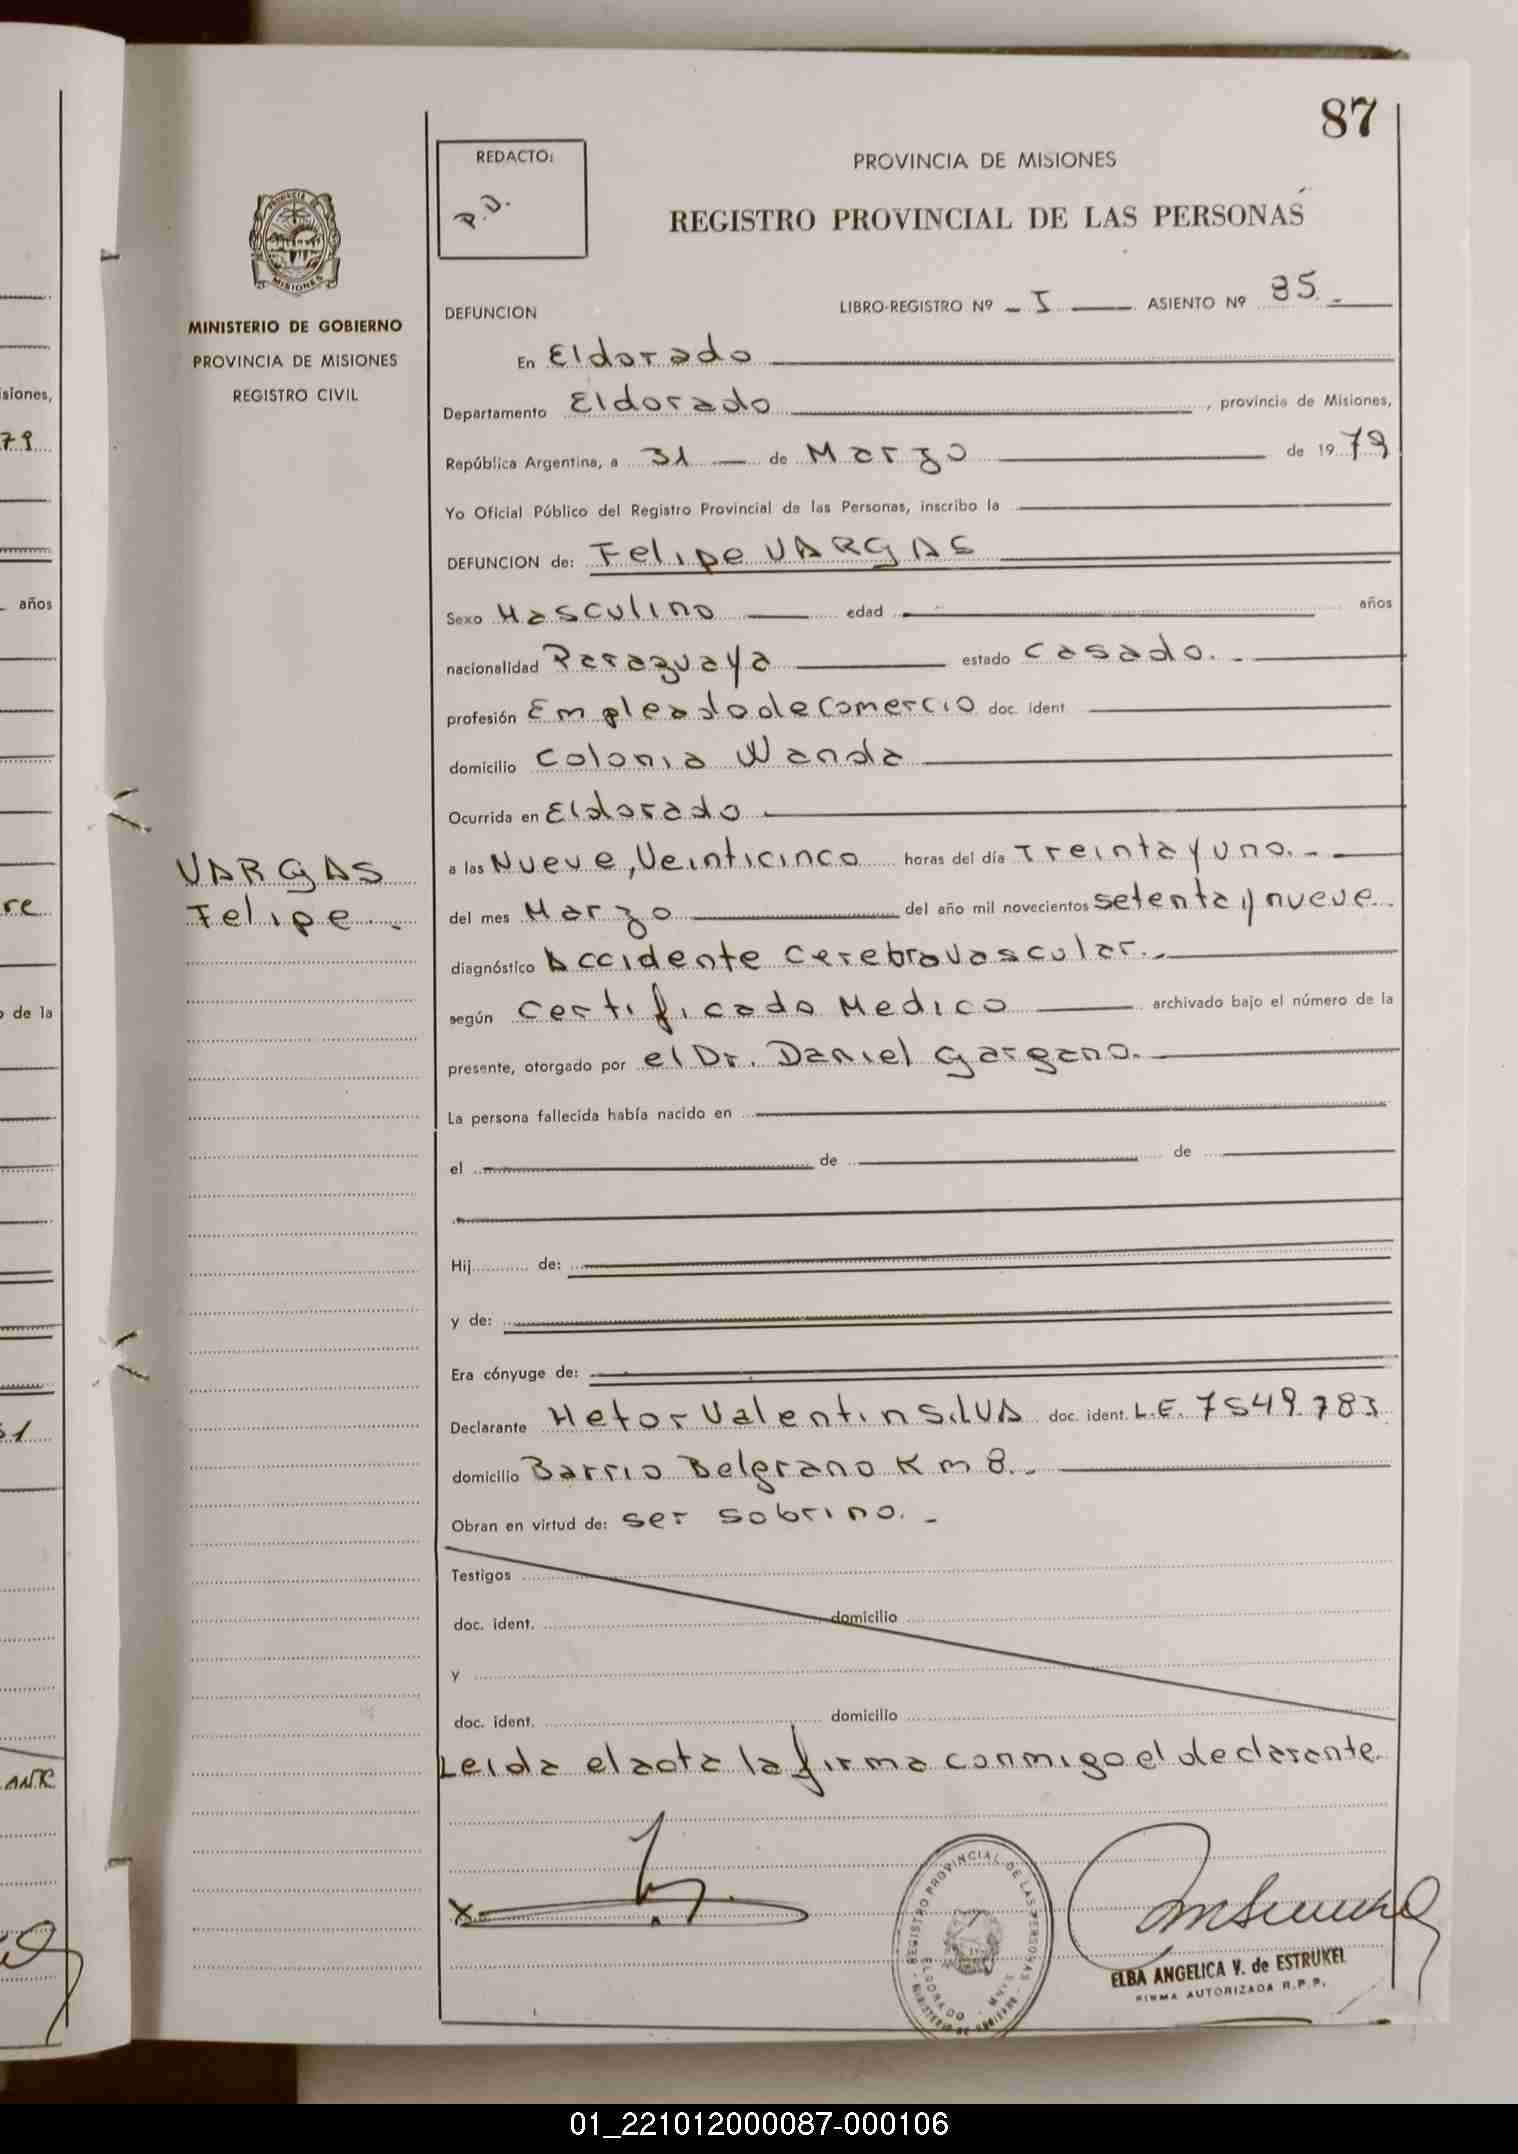 87
REDACTO:
P.D.
PROVINCIA DE MISIONES
REGISTRO PROVINCIAL DE LAS PERSONAS
MINISTERIO DE GOBIERNO
PROVINCIA DE MISIONES
REGISTRO CIVIL
DEFUNCION LIBRO-REGISTRO Nº I ASIENTO Nº 85
En Eldorado
Departamento Eldorado, provincia de Misiones,
República Argentina, a 31 de Marzo de 1979
Yo Oficial Público del Registro Provincial de las Personas, inscribo la
DEFUNCION de: Felipe VARGAS
Sexo Masculino edad años
nacionalidad Paraguaya estado Casado.
profesión Empleado de Comercio doc. ident.
domicilio Colonia Wanda
Ocurrida en Eldorado
a las Nueve, Veinticinco horas del día Treinta y uno.
del mes Marzo del año mil novecientos setenta y nueve.
diagnóstico Accidente Cerebrovascular.
según Certificado Medico archivado bajo el número de la
presente, otorgado por el Dr. Daniel Gargano.
La persona fallecida había nacido en
el de de
Hij de:
y de:
Era cónyuge de:
Declarante Hetor Valentin SilVA doc. ident. L.E. 7549.783
domicilio Barrio Belgrano Km 8.
Obran en virtud de: ser sobrino.
Testigos
doc. ident. domicilio
y
doc. ident. domicilio
Leida el acta la firma conmigo el declarante.
VARGAS
Felipe
REGISTRO PROVINCIAL DE LAS PERSONAS
ELDORADO - MNES
MINISTERIO DE GOBIERNO
ELBA ANGELICA V. de ESTRUKEL
FIRMA AUTORIZADA R.P.P.
siones,
79
años
re
o de la
51
ANK
01_221012000087-000106